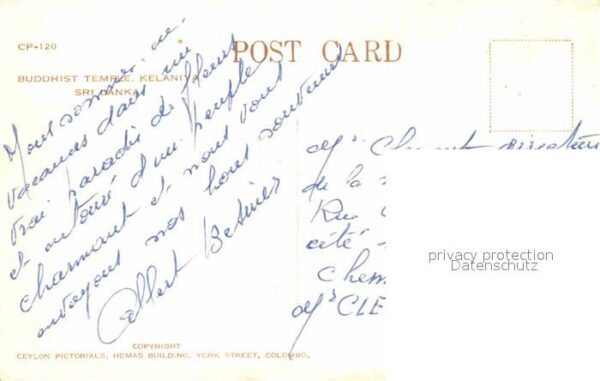 CP-120
POST CARD
BUDDHIST TEMPLE, KELANIYA
SRI LANKA
Nous sommes en
vacances dans un
vrai paradis de fleurs
et entouré d'un peuple
charmant et nous vous
envoyons nos bons souvenirs
Albert
Mr Clement directeur
de la
Rue
cité
Chem
Mr CLE
privacy protection
Datenschutz
COPYRIGHT
CEYLON PICTORIALS, HEMAS BUILDING, YORK STREET, COLOMBO,